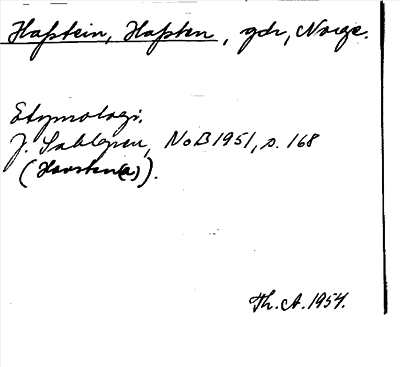 Hafstein, Hafsten, gdr, Norge.
Etymologi.
J. Sahlgren, NoB 1951, s. 168
(Havsten(a)).
Th. A. 1954.